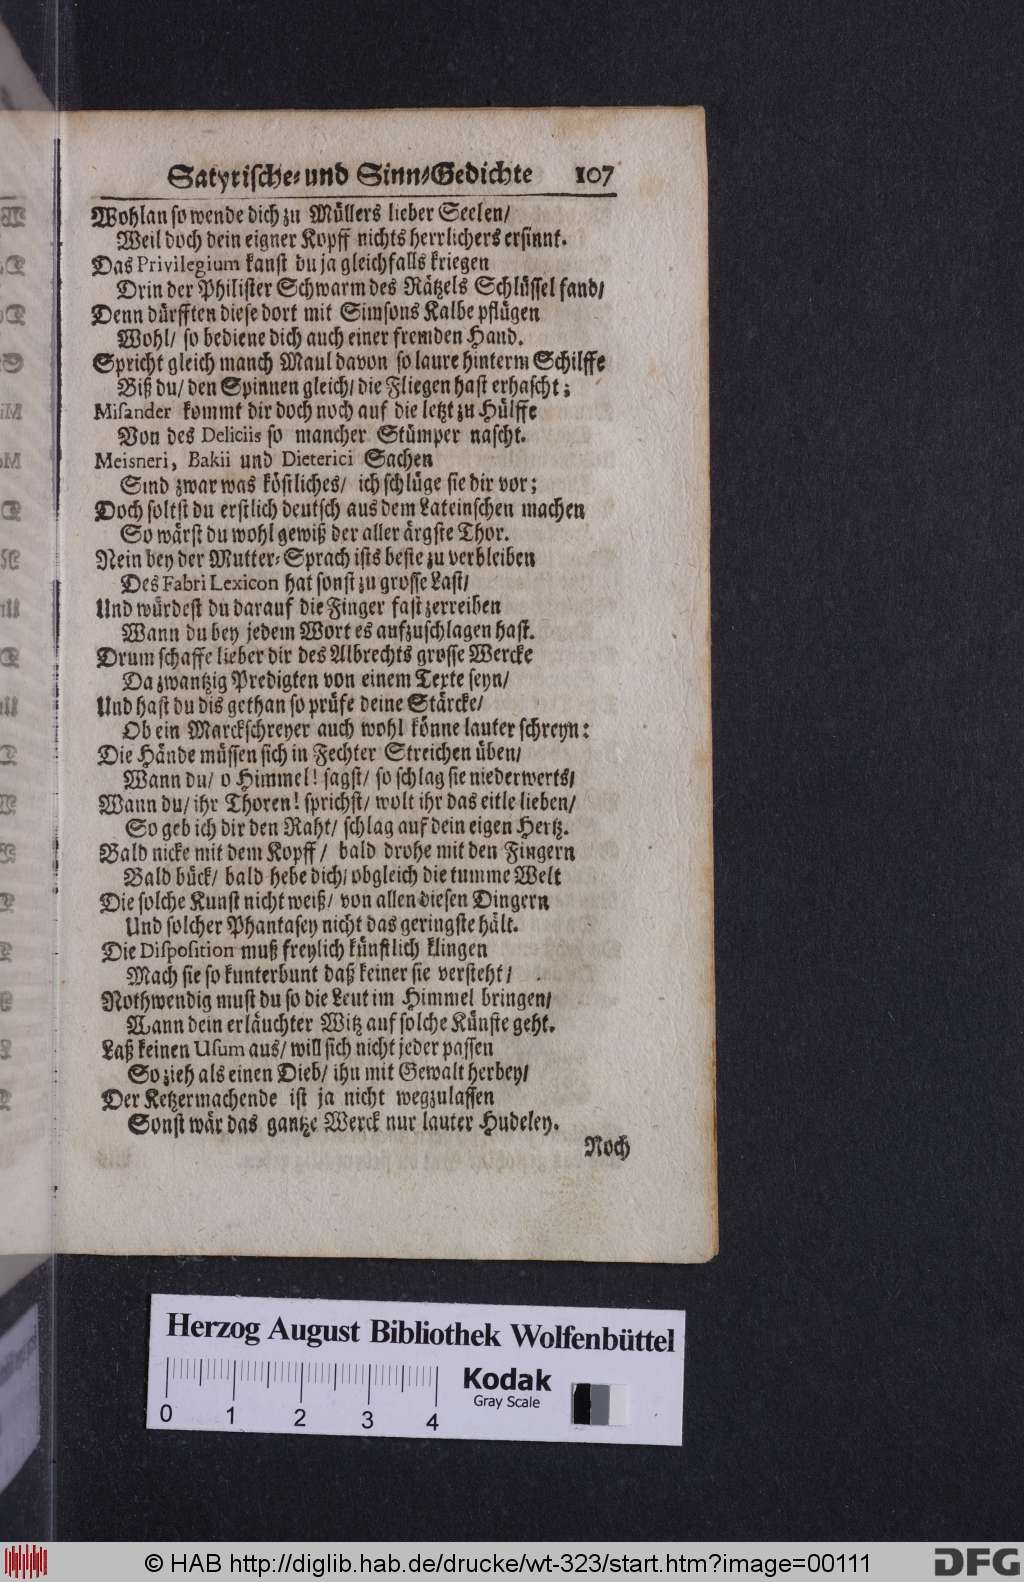 Satyrische- und Sinn-Gedichte 107
Wohlan so wende dich zu Müllers lieber Seelen/
Weil doch dein eigner Kopff nichts herrlichers ersinnt.
Das Privilegium kanst du ja gleichfalls kriegen
Drin der Philister Schwarm des Rätzels Schlüssel fand/
Denn dürfften diese dort mit Simsons Kalbe pflügen
Wohl/ so bediene dich auch einer fremden Hand.
Spricht gleich manch Maul davon so laure hinterm Schilffe
Biß du/ den Spinnen gleich/ die Fliegen hast erhascht;
Misander kommt dir doch noch auf die letzt zu Hülffe
Von des Deliciis so mancher Stümper nascht.
Meisneri, Bakii und Dieterici Sachen
Sind zwar was köstliches/ ich schlüge sie dir vor;
Doch soltst du erstlich deutsch aus dem Lateinschen machen
So wärst du wohl gewiß der aller ärgste Thor.
Nein bey der Mutter-Sprach ists beste zu verbleiben
Des Fabri Lexicon hat sonst zu grosse Last/
Und würdest du darauf die Finger fast zerreiben
Wann du bey jedem Wort es aufzuschlagen hast.
Drum schaffe lieber dir des Albrechts grosse Wercke
Da zwantzig Predigten von einem Texte seyn/
Und hast du dis gethan so prüfe deine Stärcke/
Ob ein Marckschreyer auch wohl könne lauter schreyn:
Die Hände müssen sich in Fechter Streichen üben/
Wann du/ o Himmel! sagst/ so schlag sie niederwerts/
Wann du/ ihr Thoren! sprichst/ wolt ihr das eitle lieben/
So geb ich dir den Raht/ schlag auf dein eigen Hertz.
Bald nicke mit dem Kopff/ bald drohe mit den Fingern
Bald bück/ bald hebe dich/ obgleich die tumme Welt
Die solche Kunst nicht weiß/ von allen diesen Dingern
Und solcher Phantasey nicht das geringste hält.
Die Disposition muß freylich künstlich klingen
Mach sie so kunterbunt daß keiner sie versteht/
Nothwendig must du so die Leut im Himmel bringen/
Wann dein erläuchter Witz auf solche Künste geht.
Laß keinen Usum aus/ will sich nicht jeder passen
So zieh als einen Dieb/ ihn mit Gewalt herbey/
Der Ketzermachende ist ja nicht wegzulassen
Sonst wär das gantze Werck nur lauter Hudeley.
Noch
Herzog August Bibliothek Wolfenbüttel
Kodak
Gray Scale
0 1 2 3 4
© HAB http://diglib.hab.de/drucke/wt-323/start.htm?image=00111
DFG